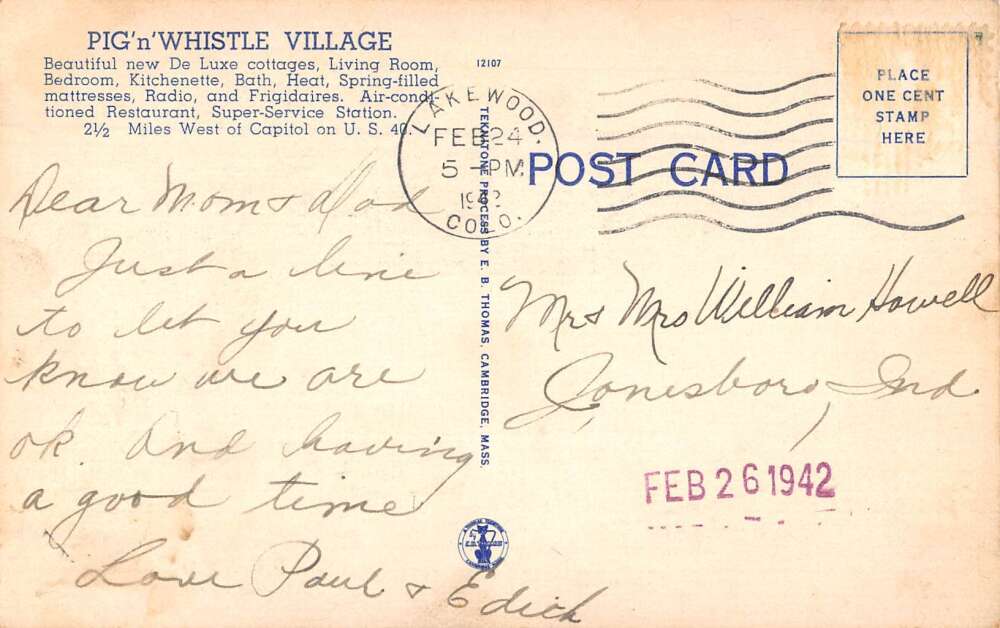 PIG'n'WHISTLE VILLAGE
Beautiful new De Luxe cottages, Living Room,
Bedroom, Kitchenette, Bath, Heat, Spring-filled
mattresses, Radio, and Frigidaires. Air-condi-
tioned Restaurant, Super-Service Station.
2½ Miles West of Capitol on U. S. 40.
12107
LAKEWOOD.
FEB 24
5 - PM
1942
COLO.
POST CARD
PLACE
ONE CENT
STAMP
HERE
TEKNATONE PROCESS BY E. B. THOMAS, CAMBRIDGE, MASS.
Dear Mom & Dad
Just a line
to let you
know we are
ok. And having
a good time
Love Paul & Edith
Mr & Mrs William Howell
Jonesboro, Ind
FEB 26 1942